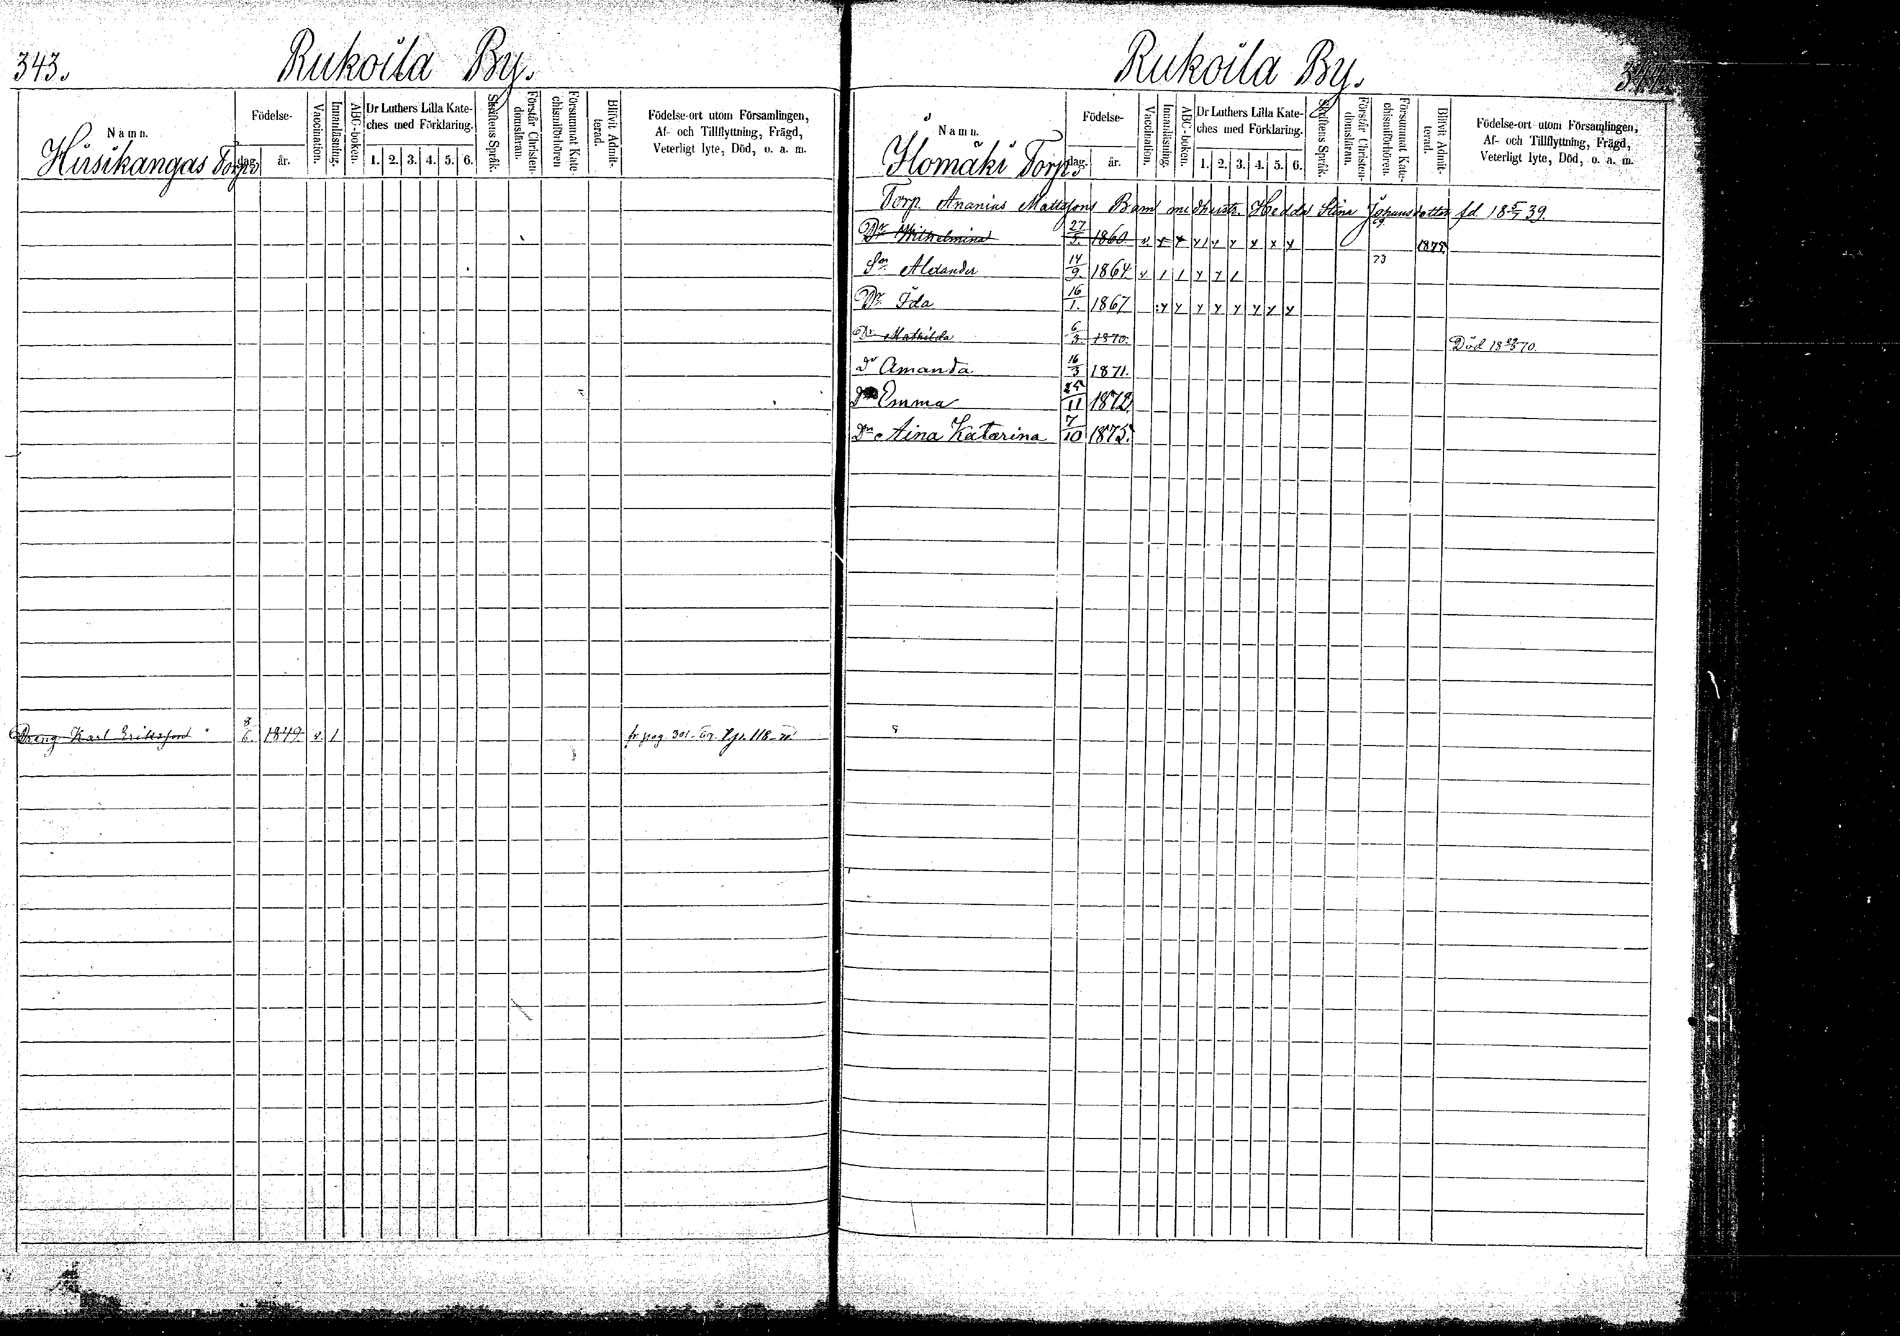 343.
Rukoila By.
Namn.
Hirsikangas Torp
Födelse-
dag.
år.
Vaccination.
Innanläsning.
ABC-boken.
Dr Luthers Lilla Kate-
ches med Förklaring.
1. 2. 3. 4. 5. 6.
Skriftens Språk.
Förstår Christen-
domsläran.
Försummat Kate-
chismiförhören
Blifvit Admit-
terad.
Födelse-ort utom Församlingen,
Af- och Tillflyttning, Frägd,
Veterligt lyte, Död, o. a. m.
Dreng Karl Eriksson 8/6. 1849. v. 1 fr. pag 301
Rukoila By.
344.
Namn.
Ilomäki Torp
Födelse-
dag.
år.
Vaccination.
Innanläsning.
ABC-boken.
Dr Luthers Lilla Kate-
ches med Förklaring.
1. 2. 3. 4. 5. 6.
Skriftens Språk.
Förstår Christen-
domsläran.
Försummat Kate-
chismiförhören.
Blifvit Admit-
terad.
Födelse-ort utom Församlingen,
Af- och Tillflyttning, Frägd,
Veterligt lyte, Död, o. a. m.
Torp. Ananias Mattssons Barn med hustr. Hedda Stina Johansdotter fd. 18 5/7 39.
Dr Wilhelmina 27/5. 1860. 1875.
Sn Alexander 14/9. 1864. 73
Dr Ida 16/1. 1867
Dr Mathilda 6/3. 1870. Död 18 70.
Dr Amanda 16/3 1871.
Dr Emma 25/11 1872.
Dr Aina Katarina 7/10 1875.